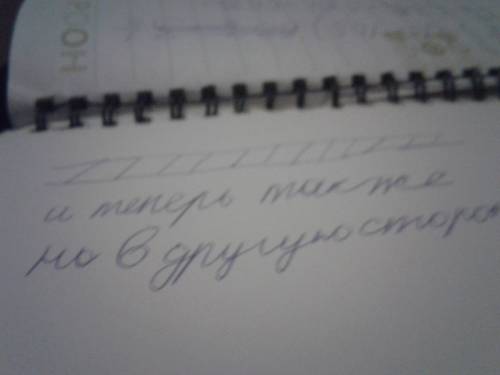 и теперь также
но в другую сторон